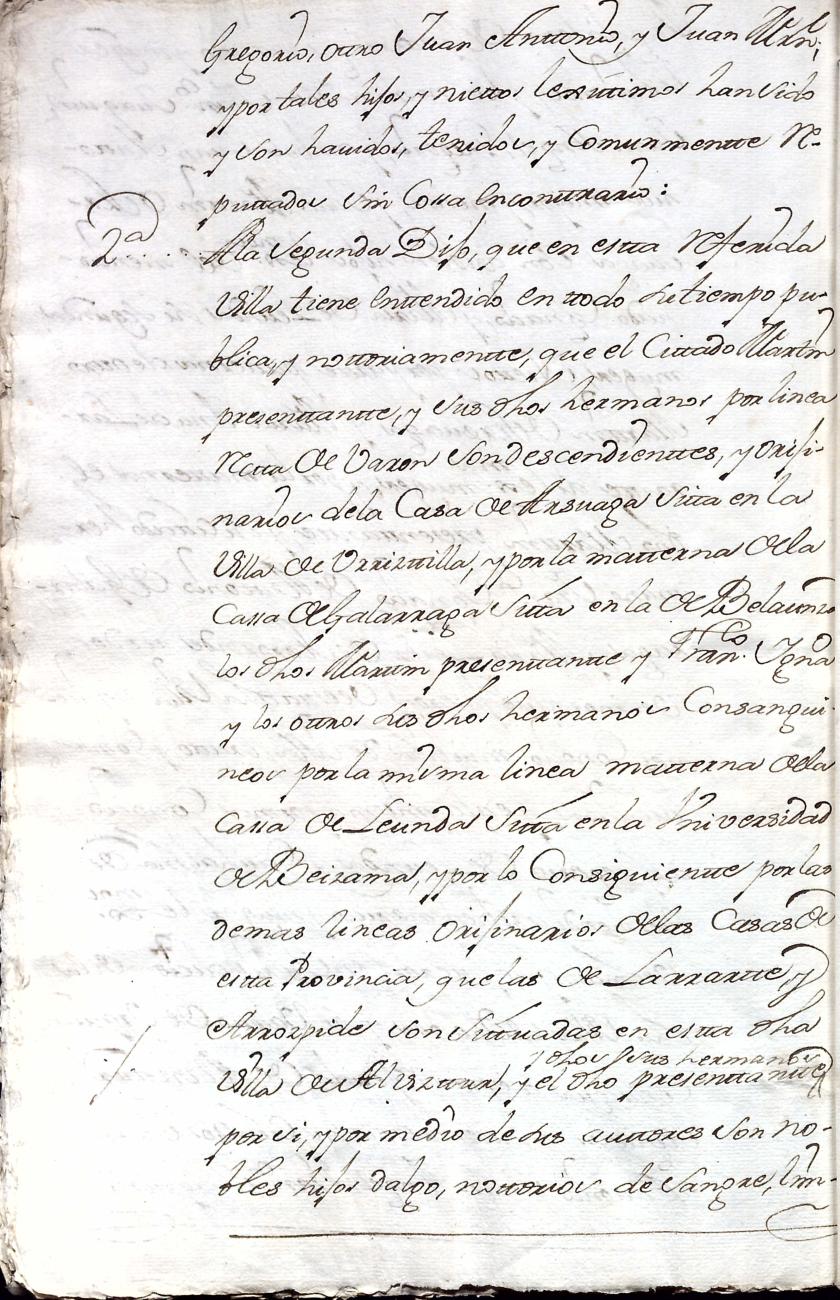 Gregorio, otro Juan Anttonio, y Juan Mrn;
y por tales hijos, y niettos lexitimos han sido
y son hauidos, tenidos, y Comunmentte Re-
puttados sin Cossa enconttrario:
2ª... A la segunda Dijo, que en estta Referida
Villa tiene enttendido en ttodo su tiempo pu-
blica, y nottoriamentte, que el Cittado Martin
presenttantte, y sus dhos hermanos por linea
Rectta de Varon son descendienttes, y orixi-
narios de la Casa de Arsuaga sitta en la
Villa de Vrristtilla, y por la matterna de la
Cassa de Galarraga sitta en la de Belaunza
los dhos Martin presenttantte y Franco. Igno
y los ottros sus dhos hermanos Consangui-
neos por la misma linea matterna de la
Cassa de Leunda sitta en la Vniversidad
de Beizama, y por lo Consiguientte por las
demas lineas orijinarios de las Casas de
estta Provincia, que las de Larrartte, y
Arrozpide son sittuadas en estta dha
y dhos sus hermanos
Villa de Alvizttur, y el dho presenttantte
por si, y por medio de sus auttores son no-
bles hijos dalgo, nottorios de sangre, lim-